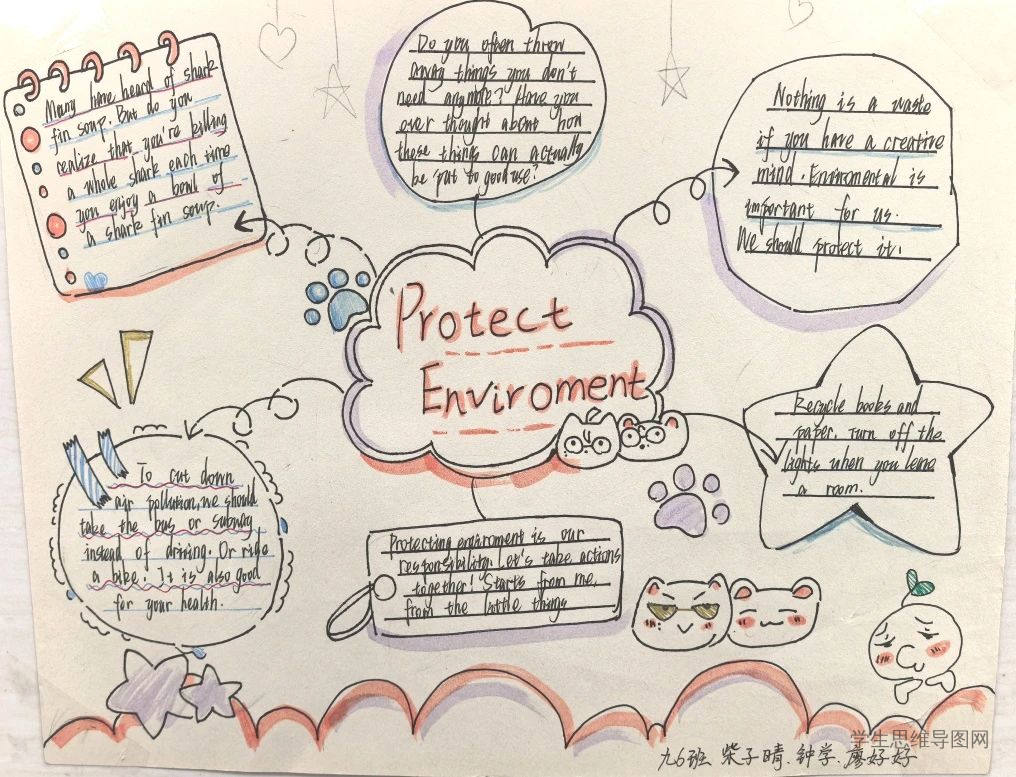 Many have heard of shark
fin soup. But do you
realize that you're killing
a whole shark each time
you enjoy a bowl of
a shark fin soup.
Do you often throw
away things you don't
need anymore? Have you
ever thought about how
these things can actually
be put to good use?
Nothing is a waste
if you have a creative
mind. Enviromental is
important for us.
We should protect it.
Protect
Enviroment
To cut down
air pollution, we should
take the bus or subway
instead of driving. Or ride
a bike. It is also good
for your health.
Protecting enviroment is our
responsibility. Let's take actions
together! Starts from me,
from the little things
Recycle books and
paper. Turn off the
lights when you leave
a room.
九6班 柴子晴.钟学.廖好好
学生思维导图网